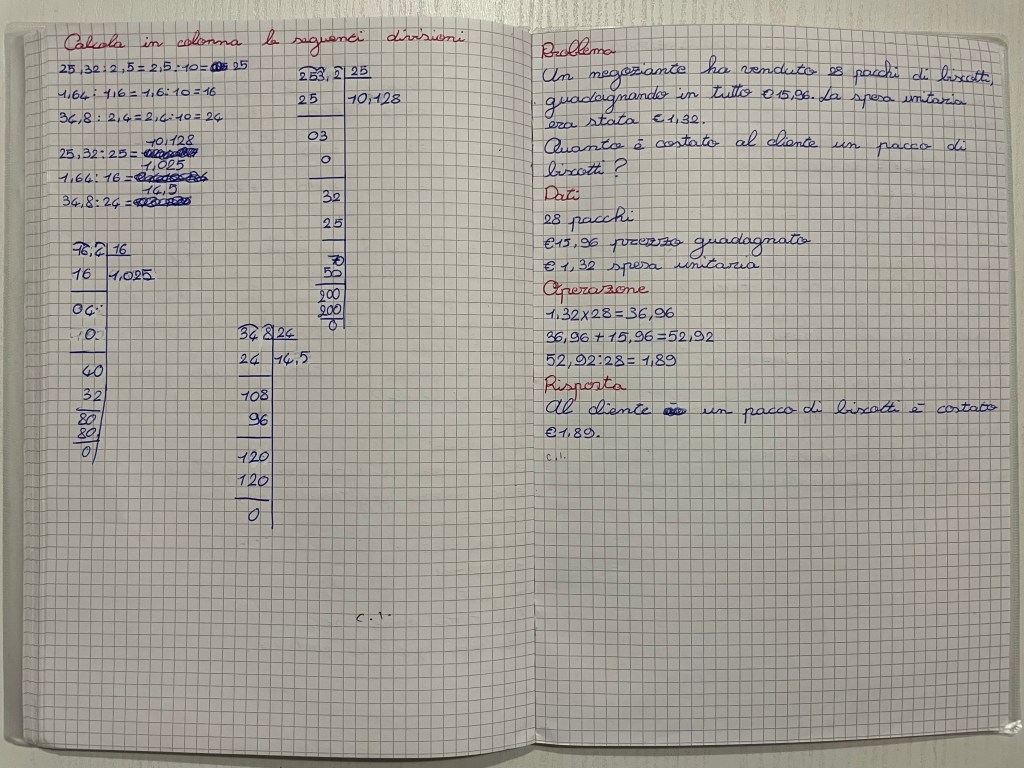 Calcola in colonna le seguenti divisioni
25,32 : 2,5 = 2,5 · 10 = 25
1,64 : 1,6 = 1,6 · 10 = 16
34,8 : 2,4 = 2,4 · 10 = 24
10,128
25,32 : 25 =
1,025
1,64 : 16 =
14,5
34,8 : 24 =
253,2 25
25 10,128
03
0
32
25
70
50
200
200
0
16
16 1,025
04
0
40
32
80
80
0
348 24
24 14,5
108
96
120
120
0
c.1.
Problema
Un negoziante ha venduto 28 pacchi di biscotti,
guadagnando in tutto €15,96. La spesa unitaria
era stata €1,32.
Quanto è costato al cliente un pacco di
biscotti?
Dati
28 pacchi
€15,96 prezzo guadagnato
€1,32 spesa unitaria
Operazione
1,32x28=36,96
36,96+15,96=52,92
52,92:28=1,89
Risposta
Al cliente un pacco di biscotti è costato
€1,89.
c.1.